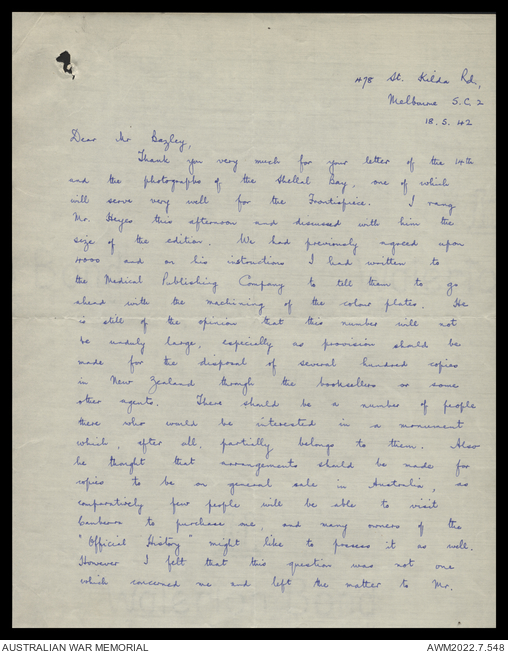 478 St. Kilda Rd,
Melbourne S.C. 2
18. 5. 42
Dear Mr Bazley,
Thank you very much for your letter of the 14th
and the photographs of the Shellal Bay, one of which
will serve very well for the Frontispiece. I rang
Mr. Heyes this afternoon and discussed with him the
size of the edition. We had previously agreed upon
4000 and on his instructions I had written to
the Medical Publishing Company to tell them to go
ahead with the machining of the colour plates. He
is still of the opinion that this number will not
be unduly large, especially as provision should be
made for the disposal of several hundred copies
in New Zealand through the booksellers or some
other agents. There should be a number of people
there who would be interested in a monument
which, after all, partially belongs to them. Also
he thought that arrangements should be made for
copies to be on general sale in Australia, as
comparatively few people will be able to visit
Canberra to purchase one, and many owners of the
"Official History" might like to possess it as well.
However I felt that this question was not one
which concerned me and left the matter to Mr.
AUSTRALIAN WAR MEMORIAL
AWM2022.7.548